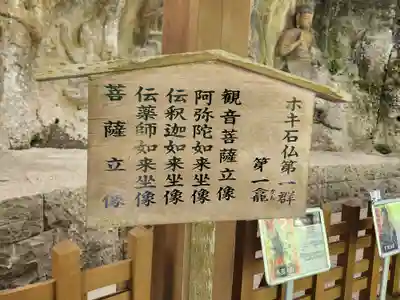 ホキ石仏第一群
第一龕
観音菩薩立像
阿弥陀如来坐像
伝釈迦如来坐像
伝薬師如来坐像
菩薩立像